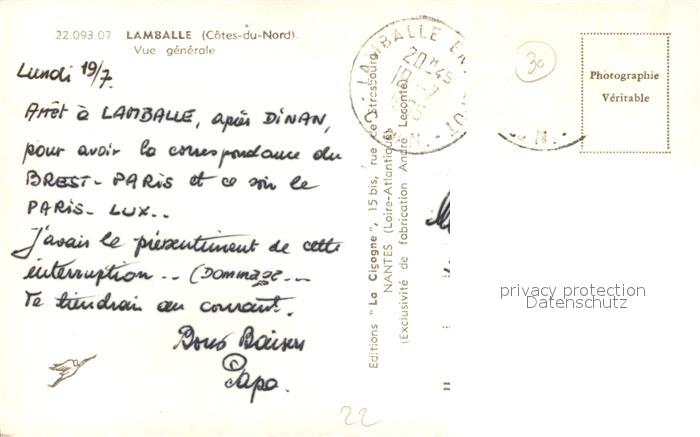 22.093.07 LAMBALLE (Côtes-du-Nord)
Vue générale
Lundi 19/7.
Arrêt à LAMBALLE, après DINAN,
pour avoir la correspondance du
BREST-PARIS et ce soir le
PARIS-LUX..
J'avais le pressentiment de cette
interruption... (DOMMAGE...
Te tiendrai au courant.
Bons Baisers
Papa.
22
Editions "La Cigogne", 15 bis, rue de Strasbourg
NANTES (Loire-Atlantique)
(Exclusivité de fabrication André Leconte)
LAMBALLE
20H45
19-7
30
Photographie
Véritable
N.
privacy protection
Datenschutz